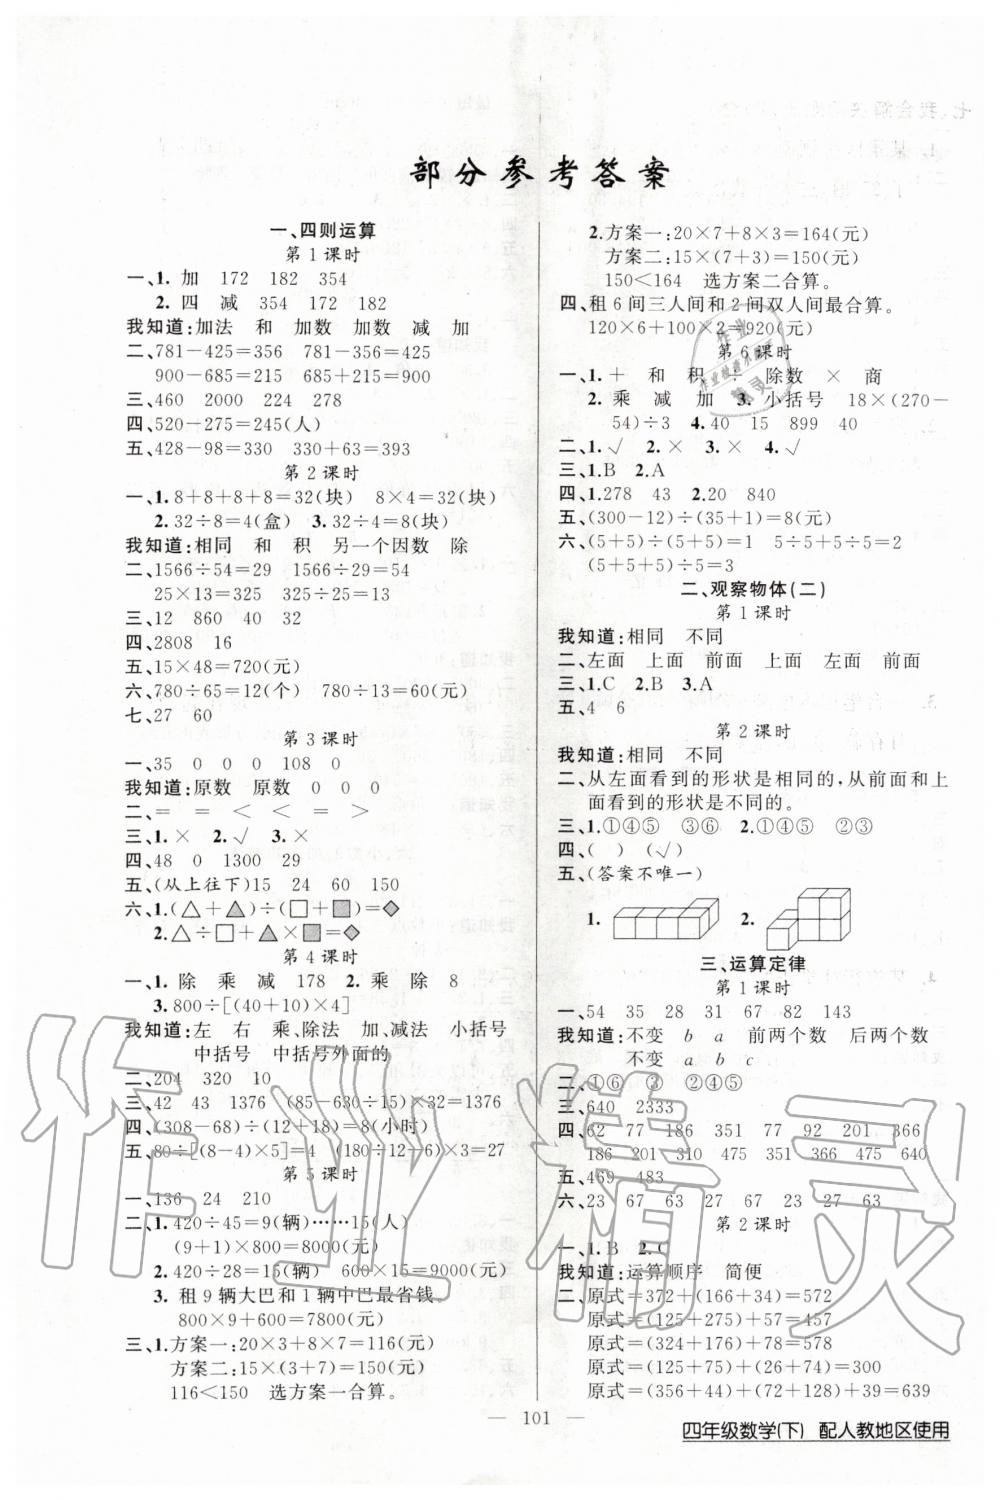 部分参考答案
一、四则运算
第1课时
一、1. 加 172 182 354
2. 四 减 354 172 182
我知道:加法 和 加数 加数 减 加
二、781-425=356 781-356=425
900-685=215 685+215=900
三、460 2000 224 278
四、520-275=245(人)
五、428-98=330 330+63=393
第2课时
一、1. 8+8+8+8=32(块) 8×4=32(块)
2. 32÷8=4(盒) 3. 32÷4=8(块)
我知道:相同 和 积 另一个因数 除
二、1566÷54=29 1566÷29=54
25×13=325 325÷25=13
三、12 860 40 32
四、2808 16
五、15×48=720(元)
六、780÷65=12(个) 780÷13=60(元)
七、27 60
第3课时
一、35 0 0 0 108 0
我知道:原数 原数 0 0 0
二、= = < < = >
三、1. × 2. √ 3. ×
四、48 0 1300 29
五、(从上往下)15 24 60 150
六、1.(△+▲)÷(□+■)=◆
2.△÷□+▲×■=◆
第4课时
一、1. 除 乘 减 178 2. 乘 除 8
3. 800÷[(40+10)×4]
我知道:左 右 乘、除法 加、减法 小括号
中括号 中括号外面的
二、204 320 10
三、42 43 1376 (85-630÷15)×32=1376
四、(308-68)÷(12+18)=8(小时)
五、80÷[(8-4)×5]=4 (180÷12-6)×3=27
第5课时
一、136 24 210
二、1. 420÷45=9(辆)……15(人)
(9+1)×800=8000(元)
2. 420÷28=15(辆) 600×15=9000(元)
3. 租9辆大巴和1辆中巴最省钱。
800×9+600=7800(元)
三、1. 方案一:20×3+8×7=116(元)
方案二:15×(3+7)=150(元)
116<150 选方案一合算。
2. 方案一:20×7+8×3=164(元)
方案二:15×(7+3)=150(元)
150<164 选方案二合算。
四、租6间三人间和2间双人间最合算。
120×6+100×2=920(元)
第6课时
一、1. + 和 积 ÷ 除数 × 商
2. 乘 减 加 3. 小括号 18×(270-
54)÷3 4. 40 15 899 40
二、1. √ 2. × 3. × 4. √
三、1. B 2. A
四、1. 278 43 2. 20 840
五、(300-12)÷(35+1)=8(元)
六、(5+5)÷(5+5)=1 5÷5+5÷5=2
(5+5+5)÷5=3
二、观察物体(二)
第1课时
我知道:相同 不同
二、左面 上面 前面 上面 左面 前面
三、1. C 2. B 3. A
五、4 6
第2课时
我知道:相同 不同
二、从左面看到的形状是相同的,从前面和上
面看到的形状是不同的。
三、1. ①④⑤ ③⑥ 2. ①④⑤ ②③
四、( ) (√)
五、(答案不唯一)
1. 2.
三、运算定律
第1课时
一、54 35 28 31 67 82 143
我知道:不变 b a 前两个数 后两个数
不变 a b c
二、①⑥ ③ ②④⑤
三、640 2333
四、62 77 186 351 77 92 201 366
186 201 351 62 366 475 640
五、469 483
六、23 67 63 27 67 23 27 63
第2课时
一、1. B 2. C
我知道:运算顺序 简便
二、原式=372+(166+34)=572
原式=(125+275)+57=457
原式=(324+176)+78=578
原式=(125+75)+(26+74)=300
原式=(356+44)+(72+128)+39=639
101
四年级数学(下) 配人教地区使用
作业精灵